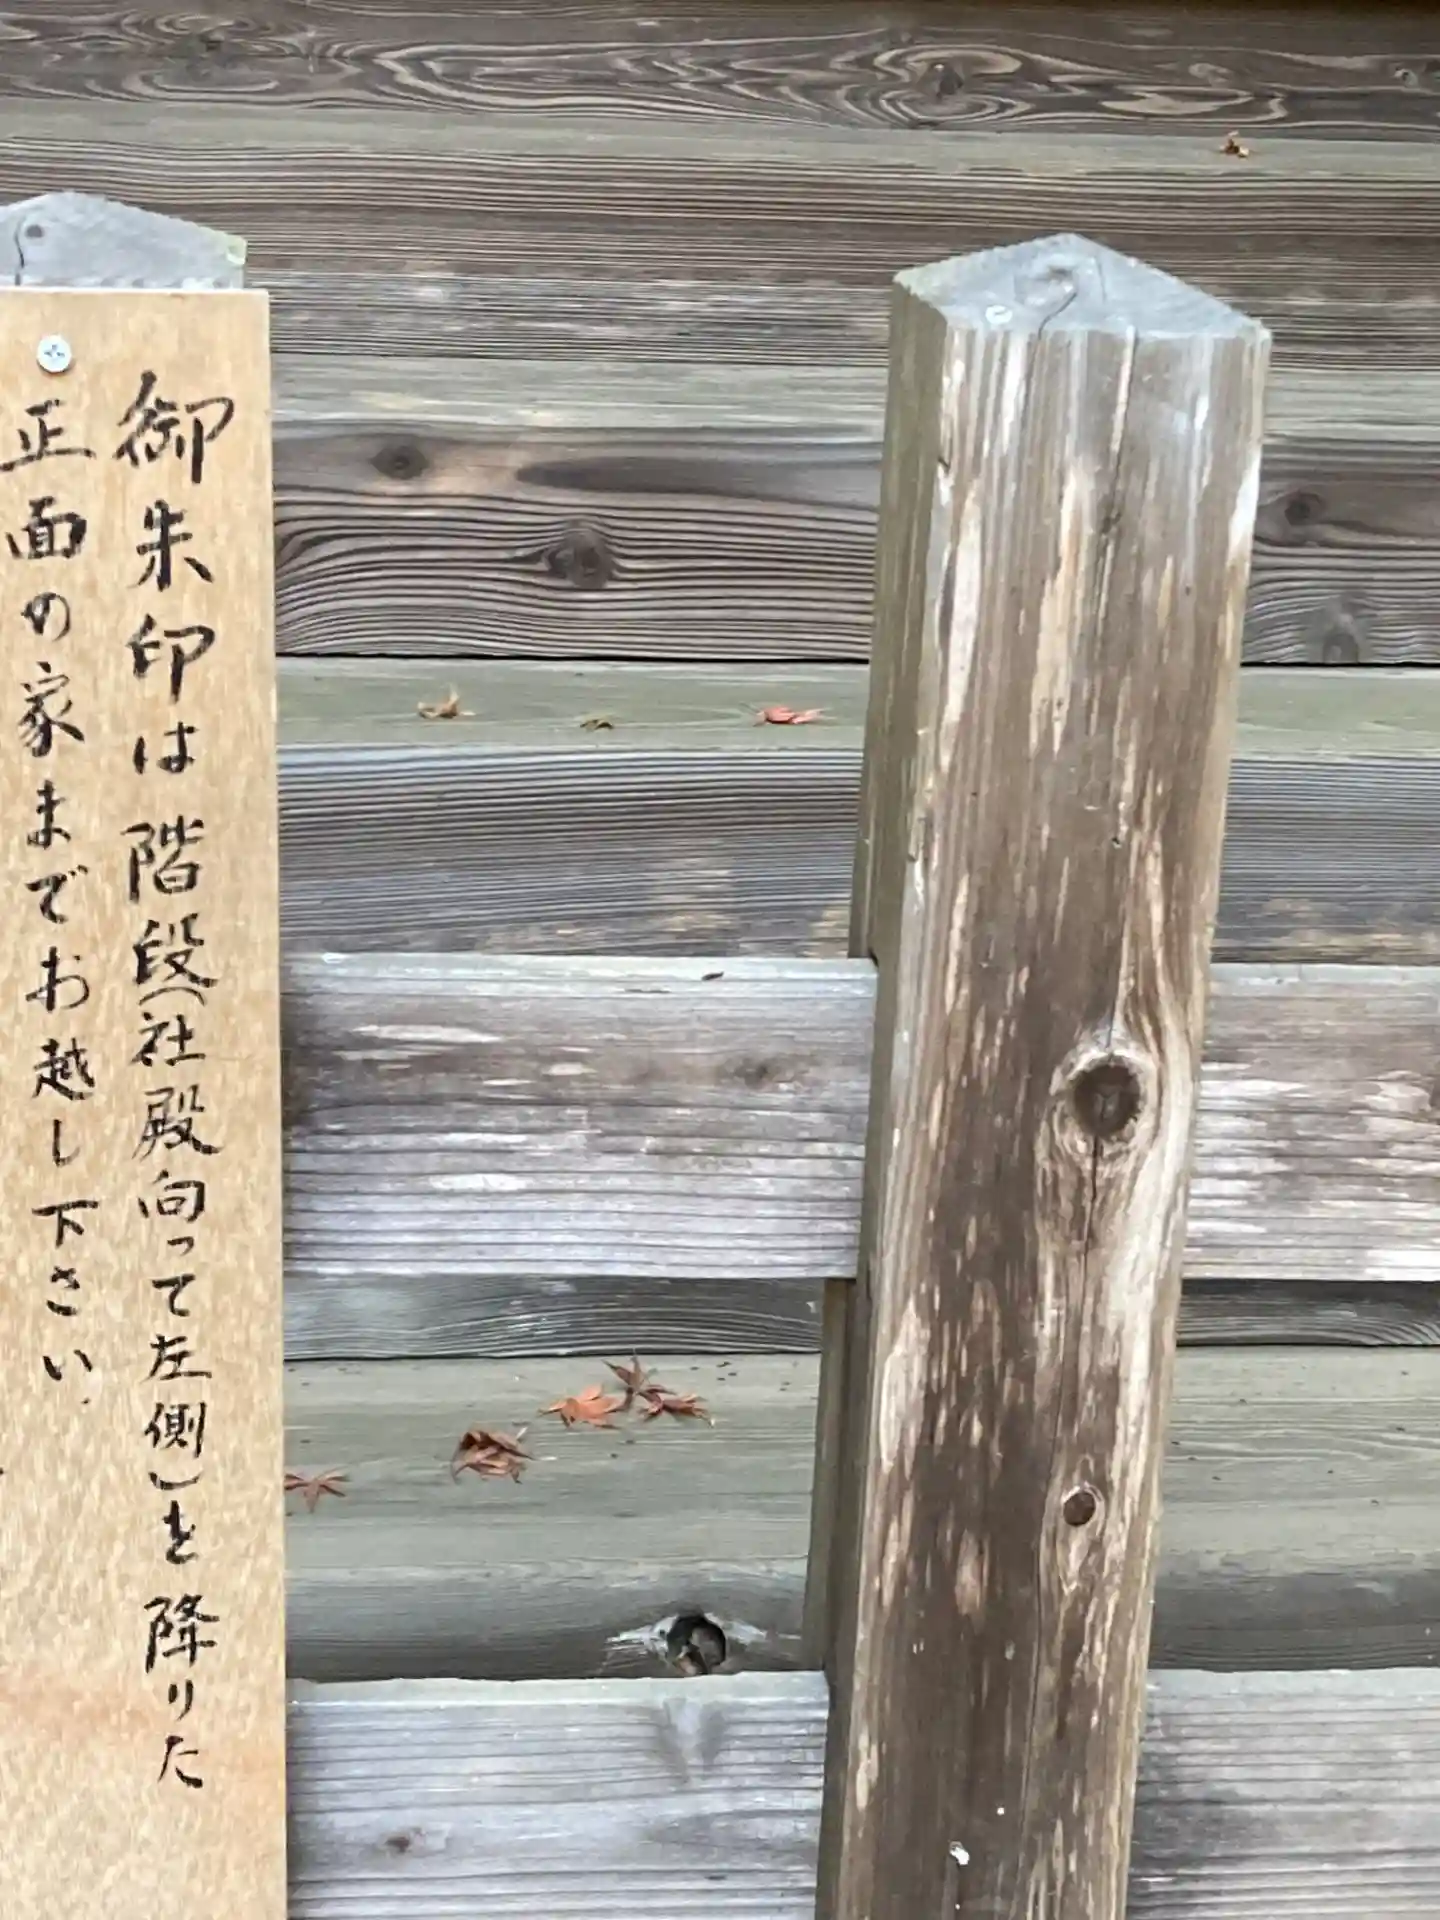 御朱印は階段(社殿向って左側)を降りた
正面の家までお越し下さい.